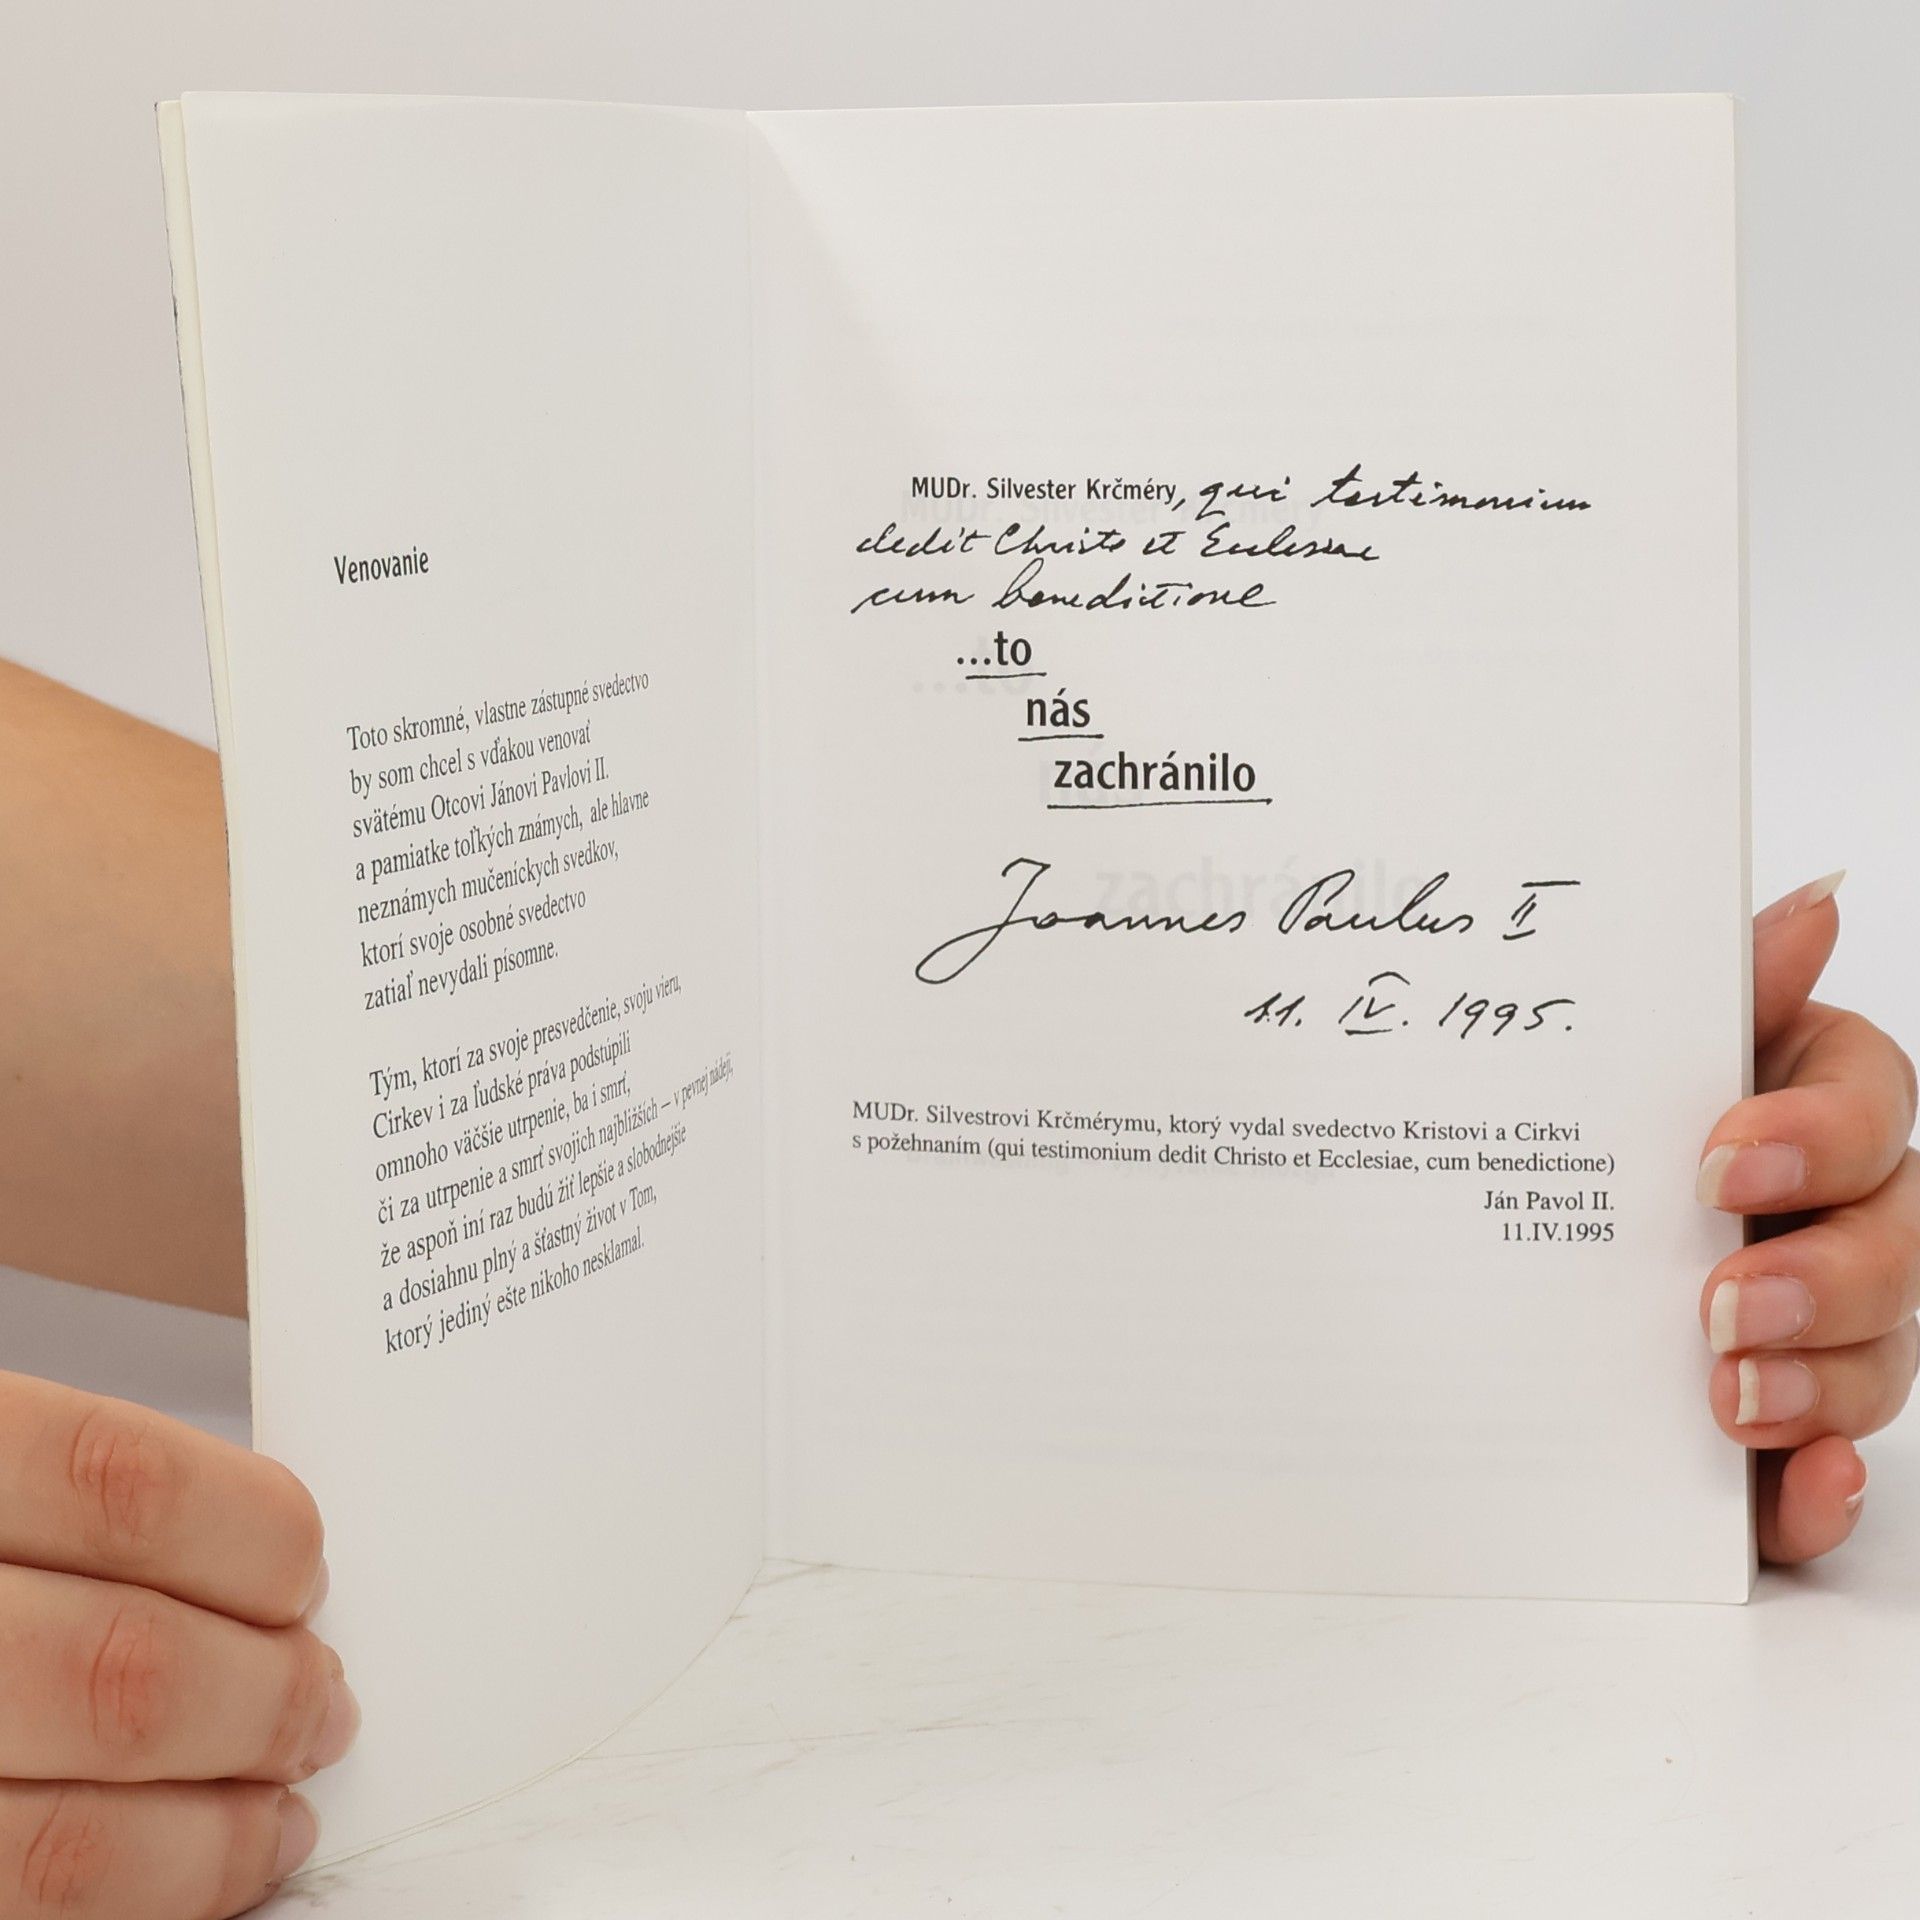 Venovanie
Toto skromné, vlastne zástupné svedectvo
by som chcel s vďakou venovať
svätému Otcovi Jánovi Pavlovi II.
a pamiatke toľkých známych, ale hlavne
neznámych mučeníckych svedkov,
ktorí svoje osobné svedectvo
zatiaľ nevydali písomne.
Tým, ktorí za svoje presvedčenie, svoju vieru,
Cirkev i za ľudské práva podstúpili
omnoho väčšie utrpenie, ba i smrť,
či za utrpenie a smrť svojich najbližších – v pevnej nádeji,
že aspoň iní raz budú žiť lepšie a slobodnejšie
a dosiahnu plný a šťastný život v Tom,
ktorý jediný ešte nikoho nesklamal.
MUDr. Silvester Krčméry, qui testimonium
dedit Christo et Ecclesiae
cum benedictione
...to
nás
zachránilo
Joannes Paulus II
11. IV. 1995.
MUDr. Silvestrovi Krčmérymu, ktorý vydal svedectvo Kristovi a Cirkvi
s požehnaním (qui testimonium dedit Christo et Ecclesiae, cum benedictione)
Ján Pavol II.
11.IV.1995